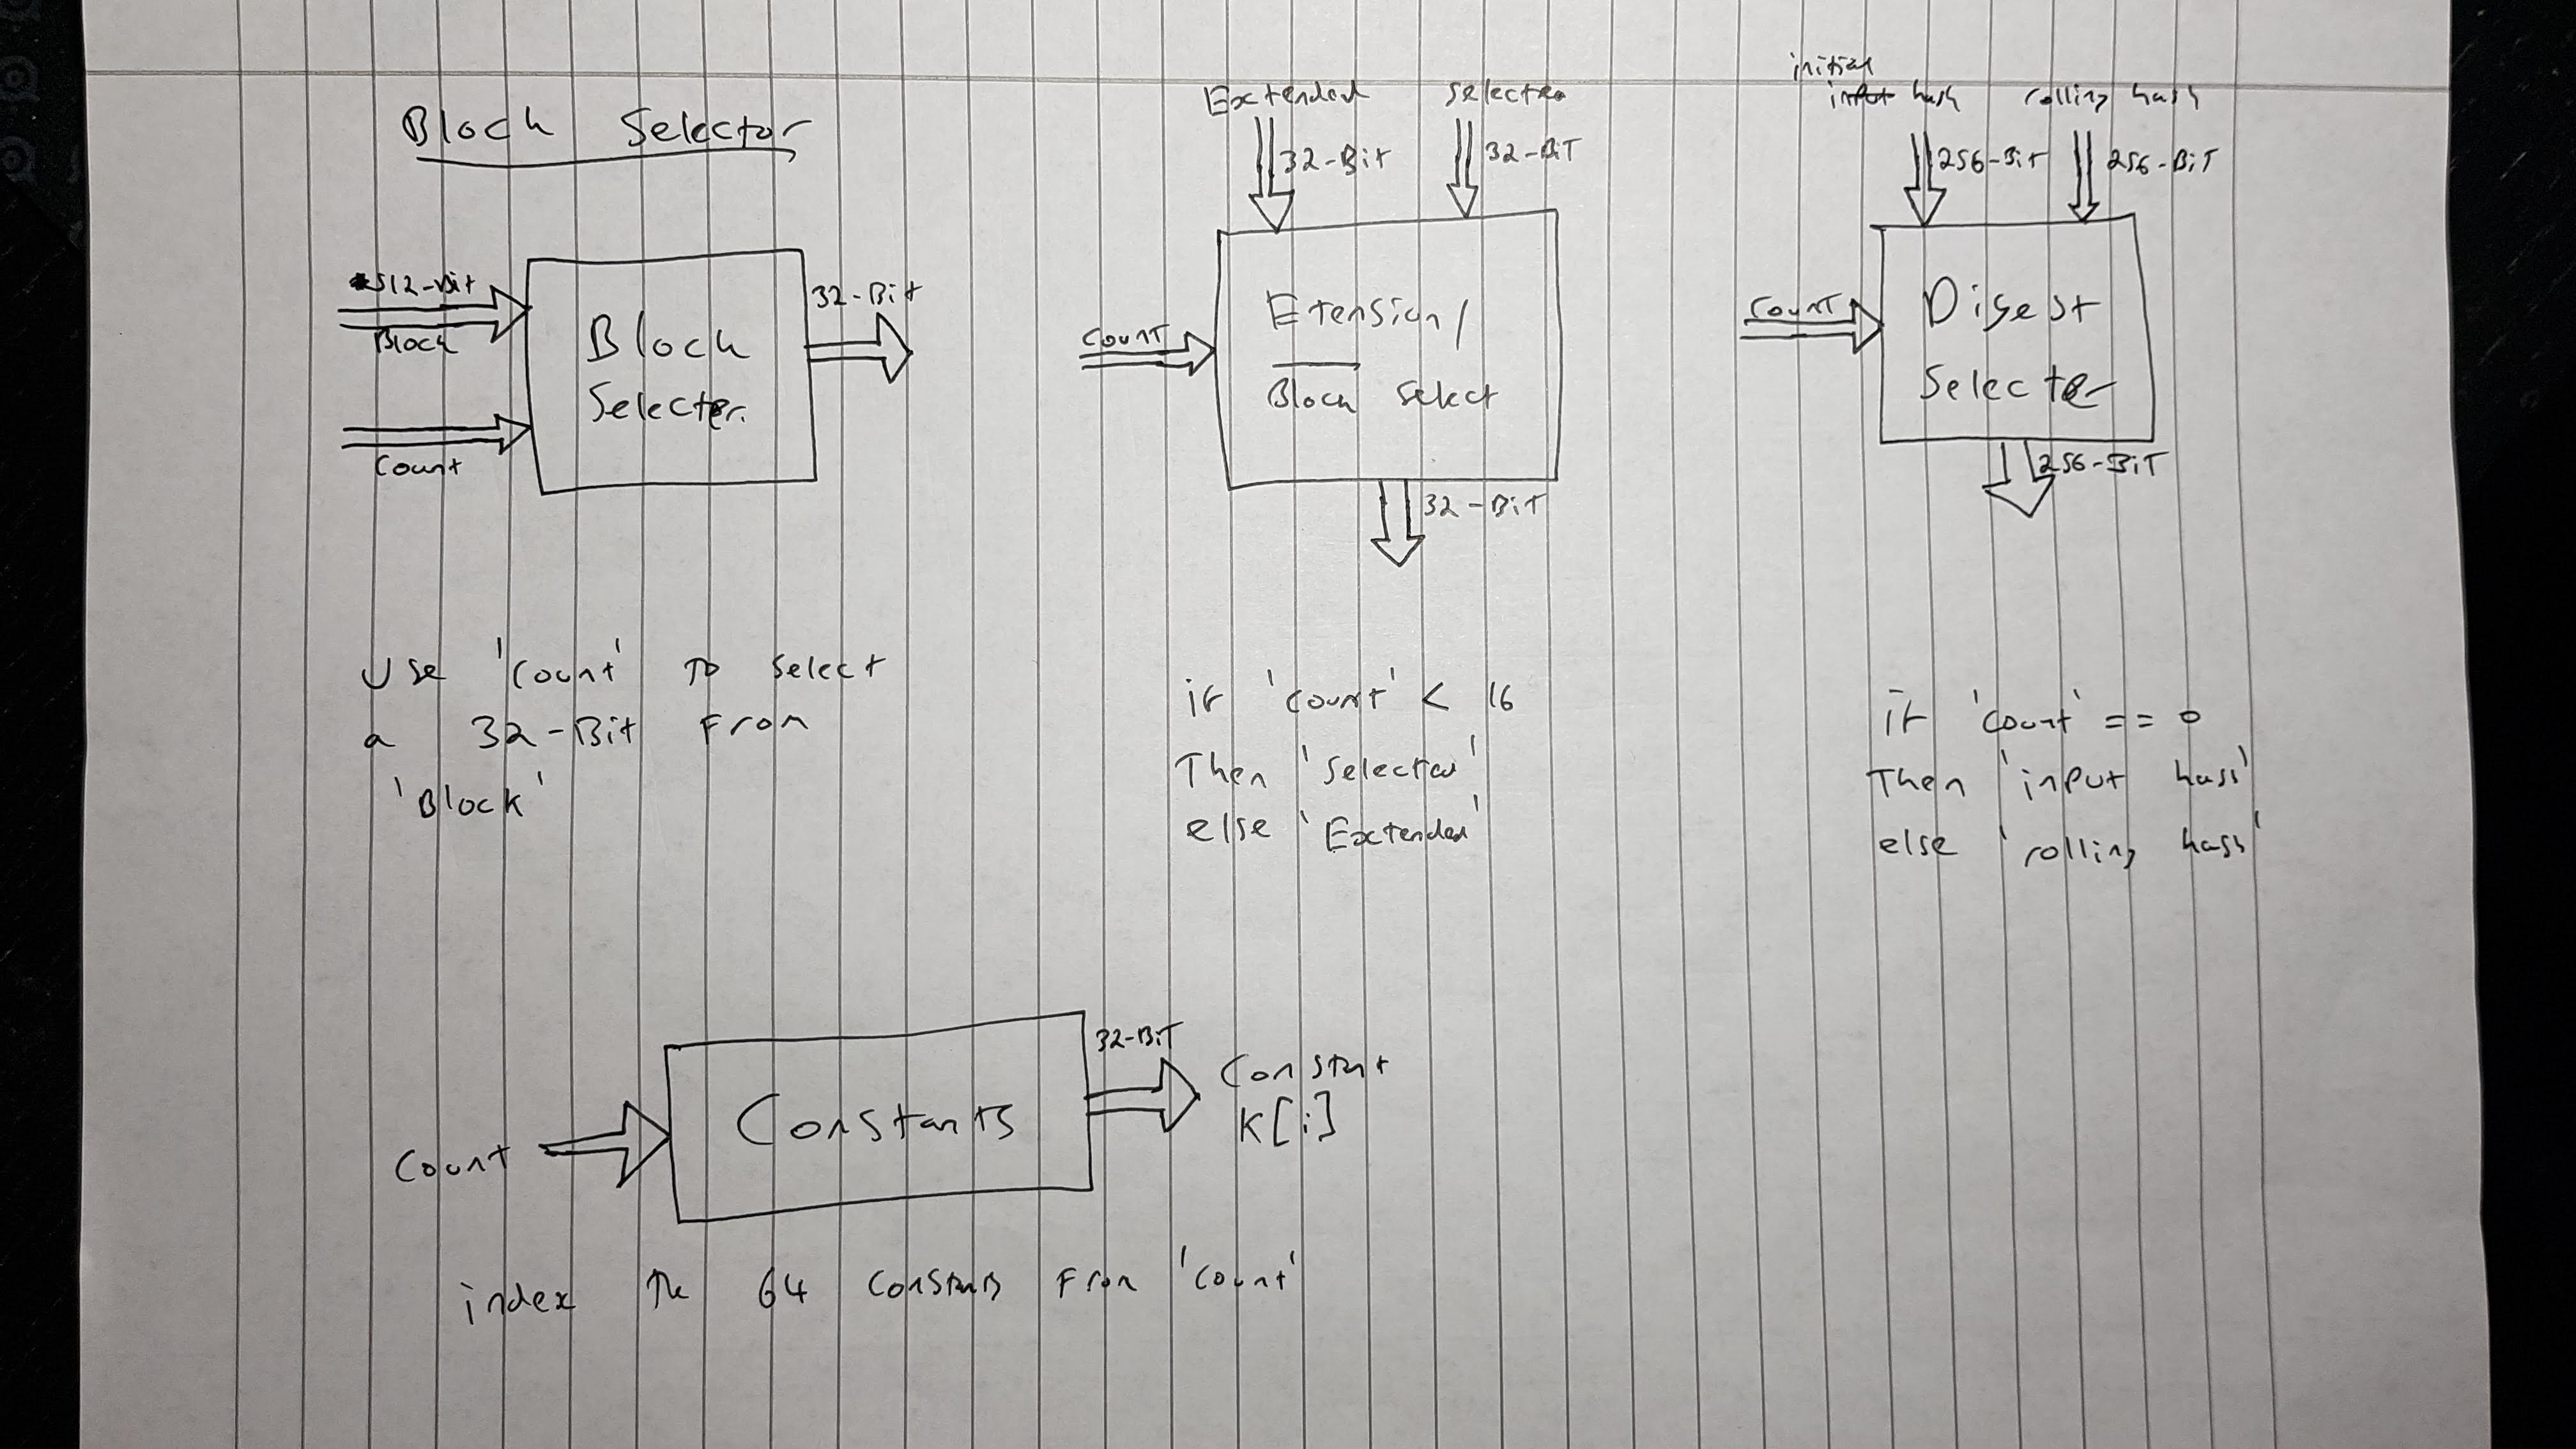 Block Selector
512-Bit
Block
Count
Block
Selecter.
32-Bit
Use 'Count' to select
a 32-Bit From
'Block'
Extended selected
32-Bit 32-BiT
Count
Extension/
Block select
32-BiT
if 'count' < 16
Then 'selected'
else 'Extended'
initial
input hash rolling hash
256-Bit 256-BiT
Count
Digest
Selecter
256-BiT
if 'count' == 0
Then 'input hash'
else 'rolling hash'
Count
Constants
32-BiT
Constant
K[i]
index the 64 constants From 'Count'